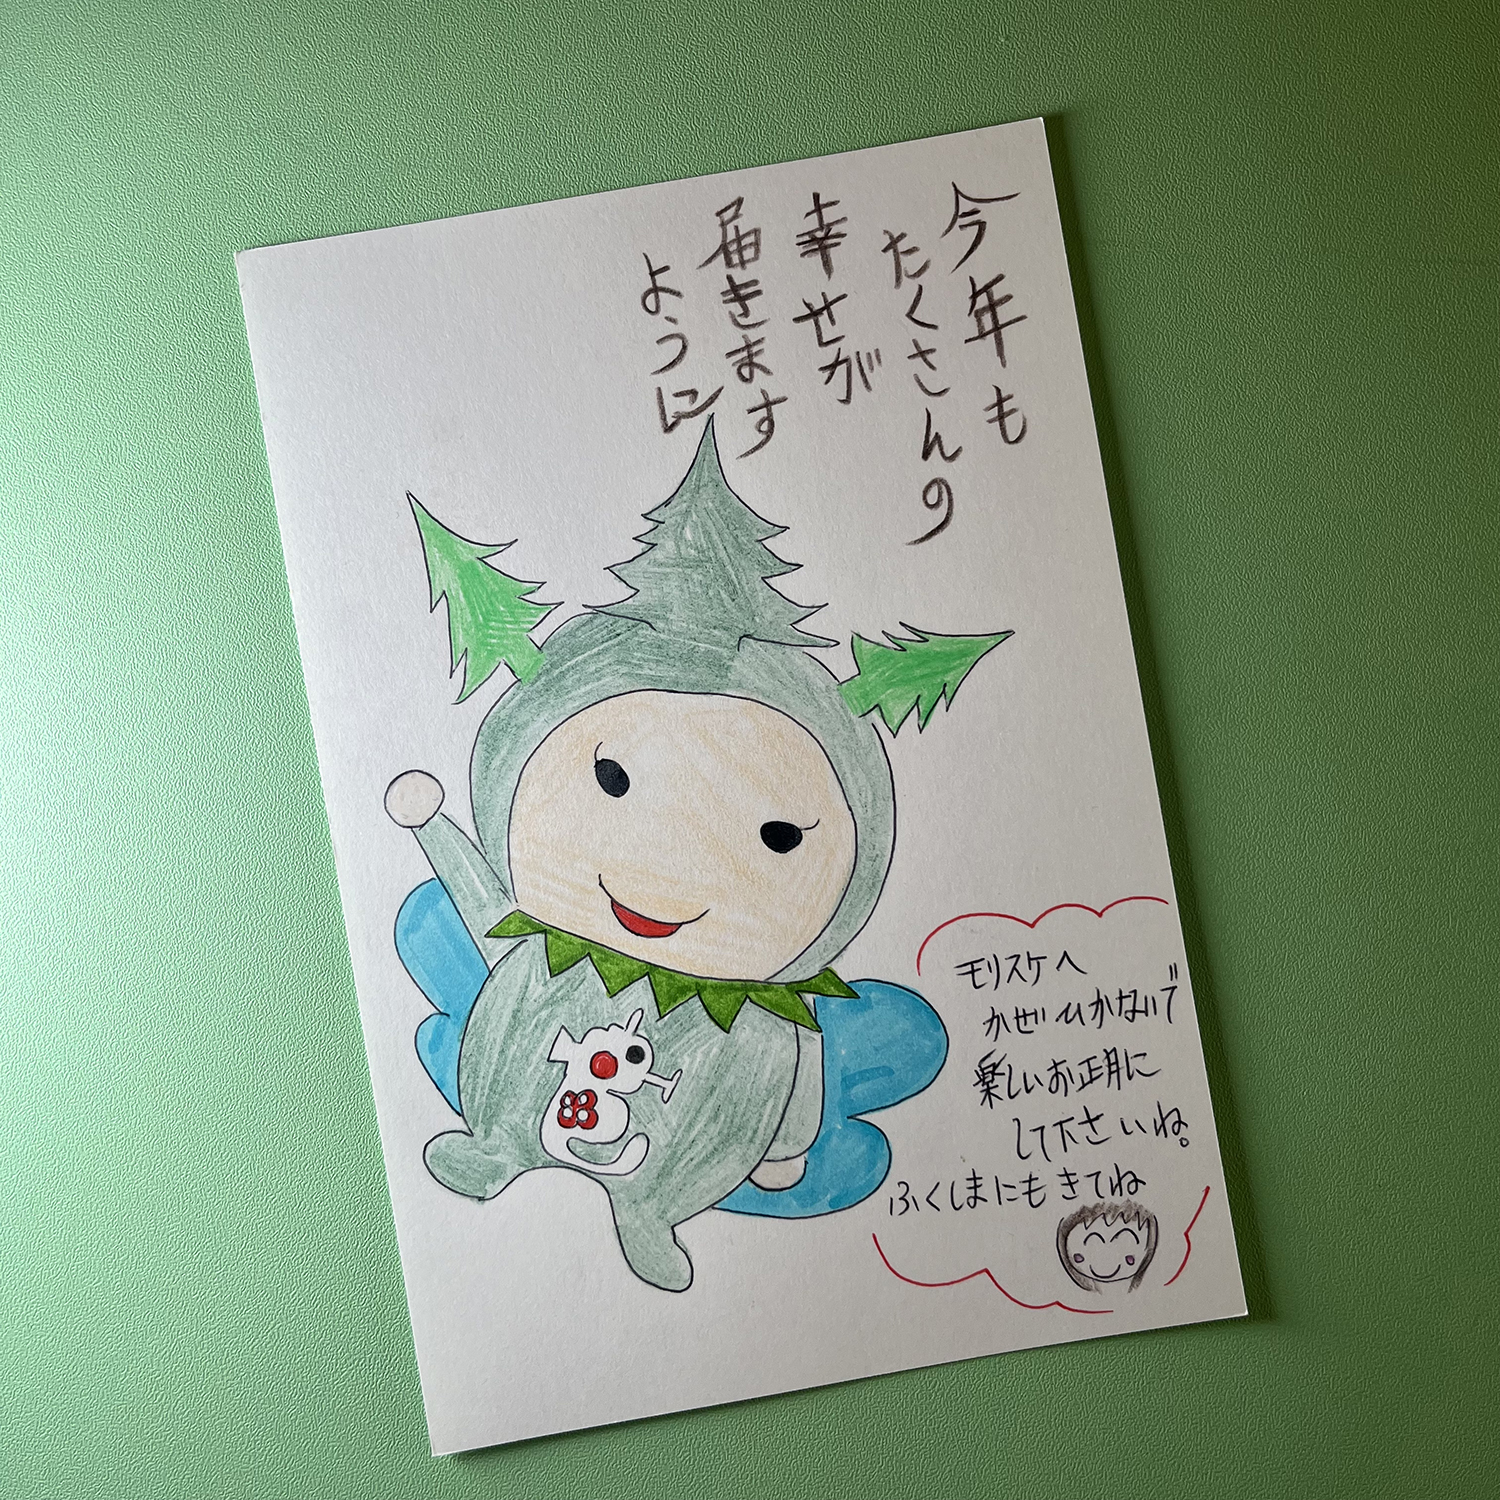 今年も
たくさんの
幸せが
届きます
ように
モリスケへ
かぜひかないで
楽しいお正月に
して下さいね。
ふくしまにもきてね